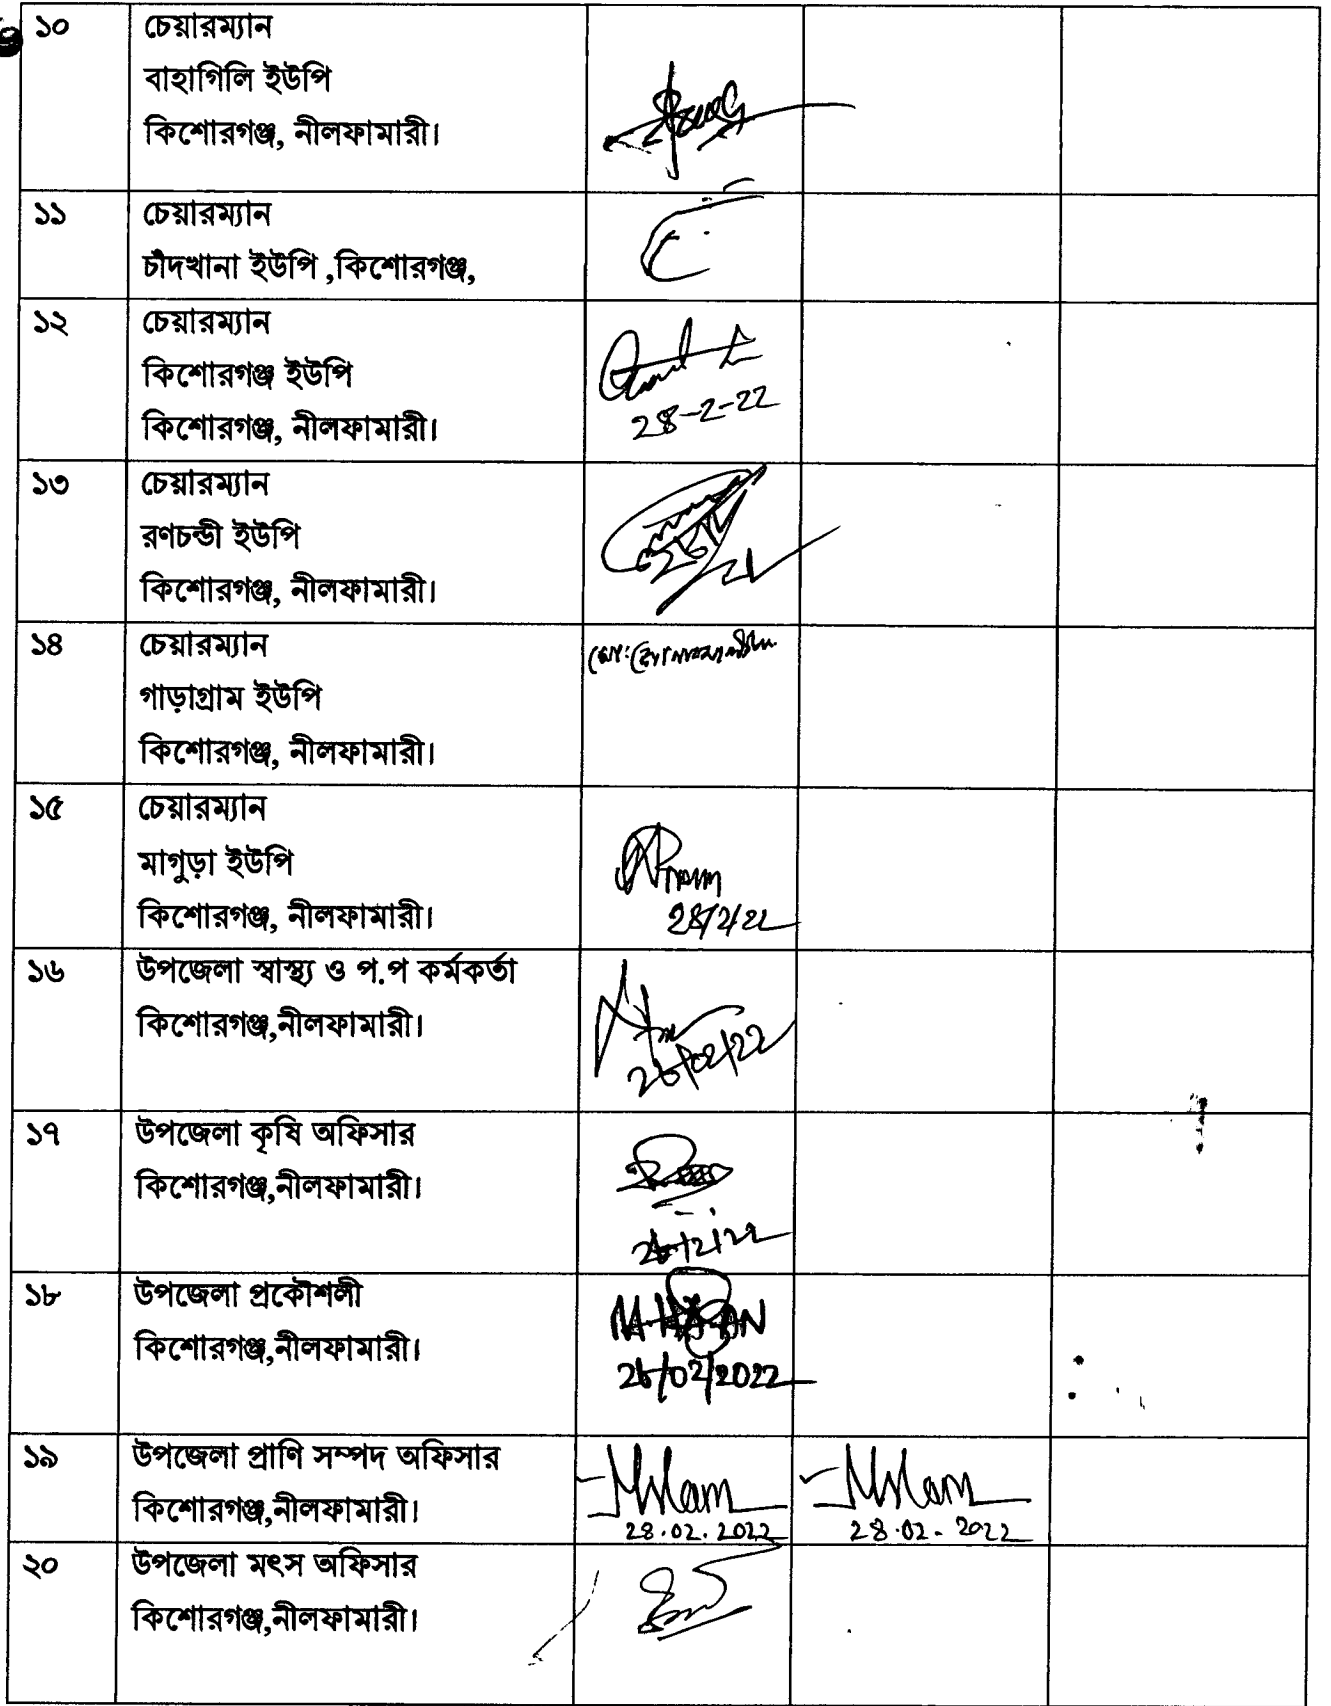 ১০ চেয়ারম্যান
বাহাগিলি ইউপি
কিশোরগঞ্জ, নীলফামারী।
১১ চেয়ারম্যান
চাঁদখানা ইউপি ,কিশোরগঞ্জ,
১২ চেয়ারম্যান
কিশোরগঞ্জ ইউপি
কিশোরগঞ্জ, নীলফামারী।
28-2-22
১৩ চেয়ারম্যান
রণচন্ডী ইউপি
কিশোরগঞ্জ, নীলফামারী।
১৪ চেয়ারম্যান
গাড়াগ্রাম ইউপি
কিশোরগঞ্জ, নীলফামারী।
১৫ চেয়ারম্যান
মাগুড়া ইউপি
কিশোরগঞ্জ, নীলফামারী।
28/2/22
১৬ উপজেলা স্বাস্থ্য ও প.প কর্মকর্তা
কিশোরগঞ্জ,নীলফামারী।
১৭ উপজেলা কৃষি অফিসার
কিশোরগঞ্জ,নীলফামারী।
১৮ উপজেলা প্রকৌশলী
কিশোরগঞ্জ,নীলফামারী।
১৯ উপজেলা প্রাণি সম্পদ অফিসার
কিশোরগঞ্জ,নীলফামারী।
28.02.2022 28.02-2022
২০ উপজেলা মৎস অফিসার
কিশোরগঞ্জ,নীলফামারী।